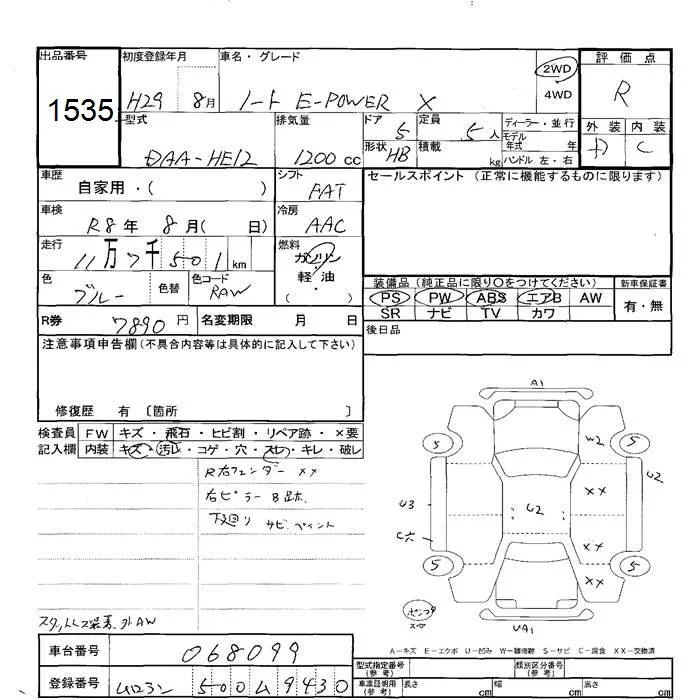 出品番号 初度登録年月 車名・グレード 評価点
1535 H29 8月 ノート E-POWER X 2WD 4WD R
型式 排気量 ドア 5 定員 5人 ディーラー・並行 外装 内装
DAA-HE12 1200cc 形状 HB 積載 kg モデル年式 年 ハンドル 左・右 D C
車歴 自家用・( ) シフト FAT セールスポイント (正常に機能するものに限ります)
車検 R8年 8月( 日) 冷房 AAC
走行 11万7千501km 燃料 ガソリン 軽・油 ( )
色 ブルー 色替 色コード RAW
装備品 (純正品に限り〇をつけてください) 新車保証書
PS PW ABS エアB AW 有・無
SR ナビ TV カワ
R券 7890円 名変期限 月 日 後日品
注意事項申告欄(不具合内容等は具体的に記入して下さい)
修復歴 有 〔箇所 〕
検査員 FW キズ・飛石・ヒビ割・リペア跡・×要
記入欄 内装 キズ・汚レ・コゲ・穴・スレ・キレ・破レ
R右フェンダー ××
右ピラー
下廻り サビ.ペイント
A1
5 W2 5
U3 U2 ×× U2
××
5 ×× 5
UA1
A-キズ E-エクボ U-凹み W-補修跡 S-サビ C-腐食 ××-交換済
車台番号 068099
登録番号 500 9430
型式指定番号(参考) 類別区分番号(参考)
車庫証明用(参考) 長さ cm 幅 cm 高さ cm